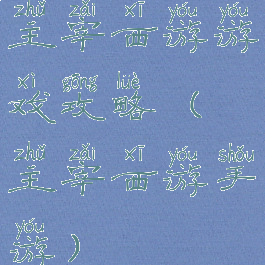 zhǔ zǎi xī yóu yóu
主宰西游游
xì gōng lüè
戏攻略（
zhǔ zǎi xī yóu shǒu
主宰西游手
yóu
游）